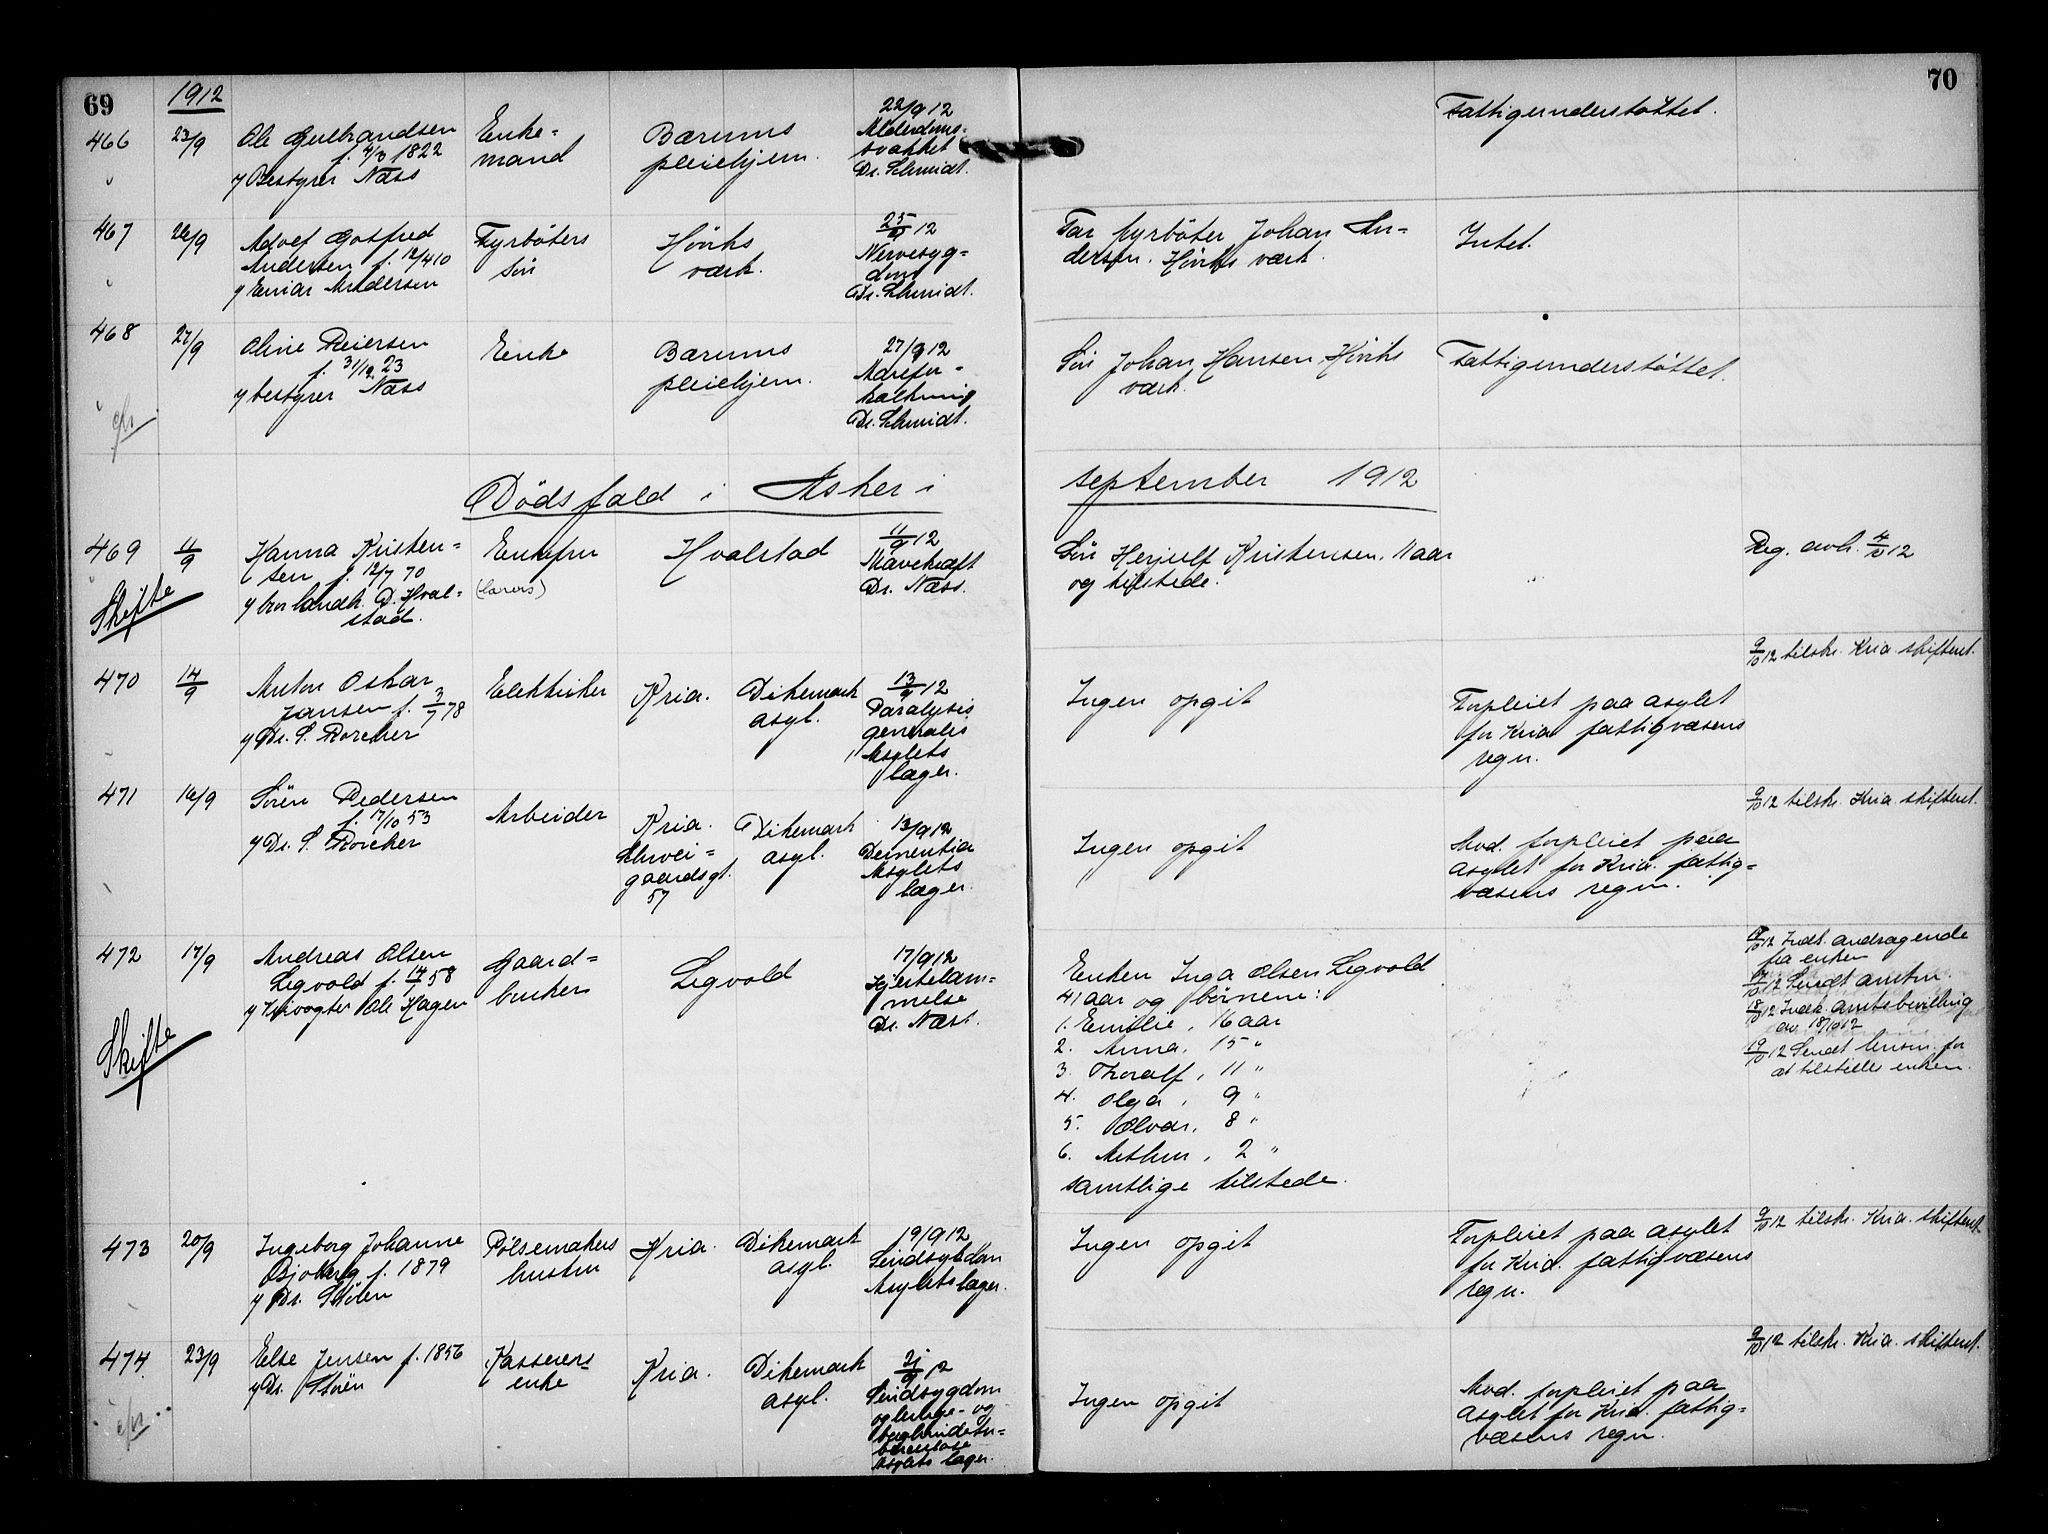 69
1912
70
466
23/9
Ole Gulbrandsen
f. 4/3 1822
v/ Bestyrer Næss
Enke-
mand
Bærums
pleiehjem.
22/9 12
Alderdoms-
svakhet
Dr. Schmidt.
Fattigunderstøttet.
467
26/9
Adolf Gotfred
Andersen f. 12/4 10
v/ Einar Andersen
Fyrbøters
søn
Høviks
værk.
25/9 12
Nervesyg-
dom
Dr. Schmidt.
Far fyrbøter Johan An-
dersen. Høviks værk.
Intet.
468
27/9
Oline Reiersen
f. 31/12 23
v/ bestyrer Næss
Enke
Bærums
pleiehjem.
27/9 12
Aarefor-
kalkning
Dr. Schmidt.
Søn Johan Hansen, Høviks
værk.
Fattigunderstøttet.
Dødsfald i Asker i
september 1912
469
11/9
Skifte
Hanna Kristen-
sen f. 12/7 70
v/ horlandh. D. Hval-
stad.
Enkefru
Hvalstad
11/9 12
Mavekræft
Dr. Næss.
Søn Herjulf Kristensen. 11 aar
og tilstede.
Reg. avh. 4/10 12
470
14/9
Anton Oskar
Jansen f. 3/7 78
v/ Dr. S. Borcher
Elektriker
Kria.
Dikemark
asyl.
13/9 12
Paralysis
generalis
Asylets
læger.
Ingen opgit
Forpleiet paa asylet
for Kria fattigvæsens
regn.
9/10 12 tilskr. Kria. skifteret.
471
16/9
Sören Pedersen
f. 17/10 53
v/ Dr. S. Borcher
Arbeider
Kria.
Schwei-
gaardsgt.
57
Dikemark
asyl.
13/9 12
Dementia
Asylets
læger.
Ingen opgit
Mod. forpleiet paa
asylet for Kria. fattig-
væsens regn.
9/10 12 tilskr. Kria. skifteret.
472
17/9
Skifte
Andreas Olsen
Legvold f. 14/1 58
v/ Kirivogter Ole Hagen
Gaard-
bruker
Legvold
17/9 12
Hjertelam-
melse
Dr. Næss.
Enken Inga Olsen Legvold
41 aar og børnene:
1. Emilie, 16 aar
2. Anna, 15 "
3. Thoralf, 11 "
4. Olga, 9 "
5. Alvar, 8 "
6. Arthur, 2 "
samtlige tilstede.
12 Indk. andragende
fra enken
17/10 12 Sendt amtm.
18/10 12 Indk. amtsbevilling
av 18/10 12
19/10 12 Sendt lensm. for
at tilstilles enken.
473
20/9
Ingeborg Johanne
Bjoberg f. 1879
v/ Dr. Stören
Pölsemakers
hustru
Kria.
Dikemark
asyl.
19/9 12
Sindsykdom
Asylets læger.
Ingen opgit
Forpleiet paa asylet
for Kria. fattigvæsens
regn.
9/10 12 tilskr. Kria. skifteret.
474.
23/9
Else Jensen f. 1856
v/ Dr. Stören
Kasserers
enke
Kria.
Dikemark
asyl.
21/9 12
Sindsygdom
og lunge- og
bughindetu-
berculose
Asylets læger.
Ingen opgit
Mod. forpleiet paa
asylet for Kria. fattig-
væsens regn.
9/10 12 tilskr. Kria. skifteret.